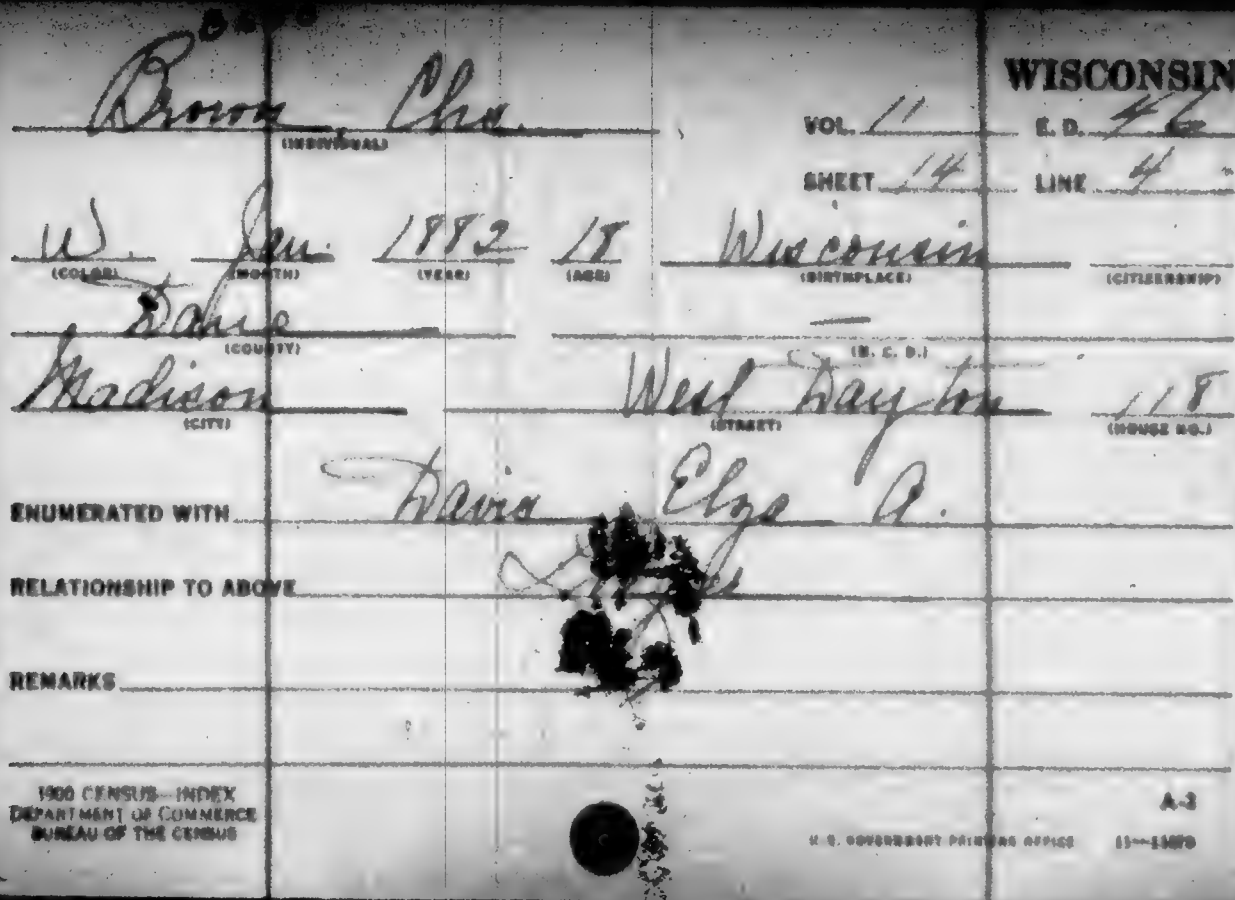 WISCONSIN
Brown Cha.
(INDIVIDUAL)
VOL. 11 E. D. 46
SHEET 14 LINE 4
W. Jan. 1882 18 Wisconsin
(COLOR) (MONTH) (YEAR) (AGE) (BIRTHPLACE) (CITIZENSHIP)
Dane —
(COUNTY) (M. C. D.)
Madison West Dayton 118
(CITY) (STREET) (HOUSE NO.)
ENUMERATED WITH Davis A.
RELATIONSHIP TO ABOVE
REMARKS
1900 CENSUS—INDEX
DEPARTMENT OF COMMERCE
BUREAU OF THE CENSUS
A-3
U. S. GOVERNMENT PRINTING OFFICE